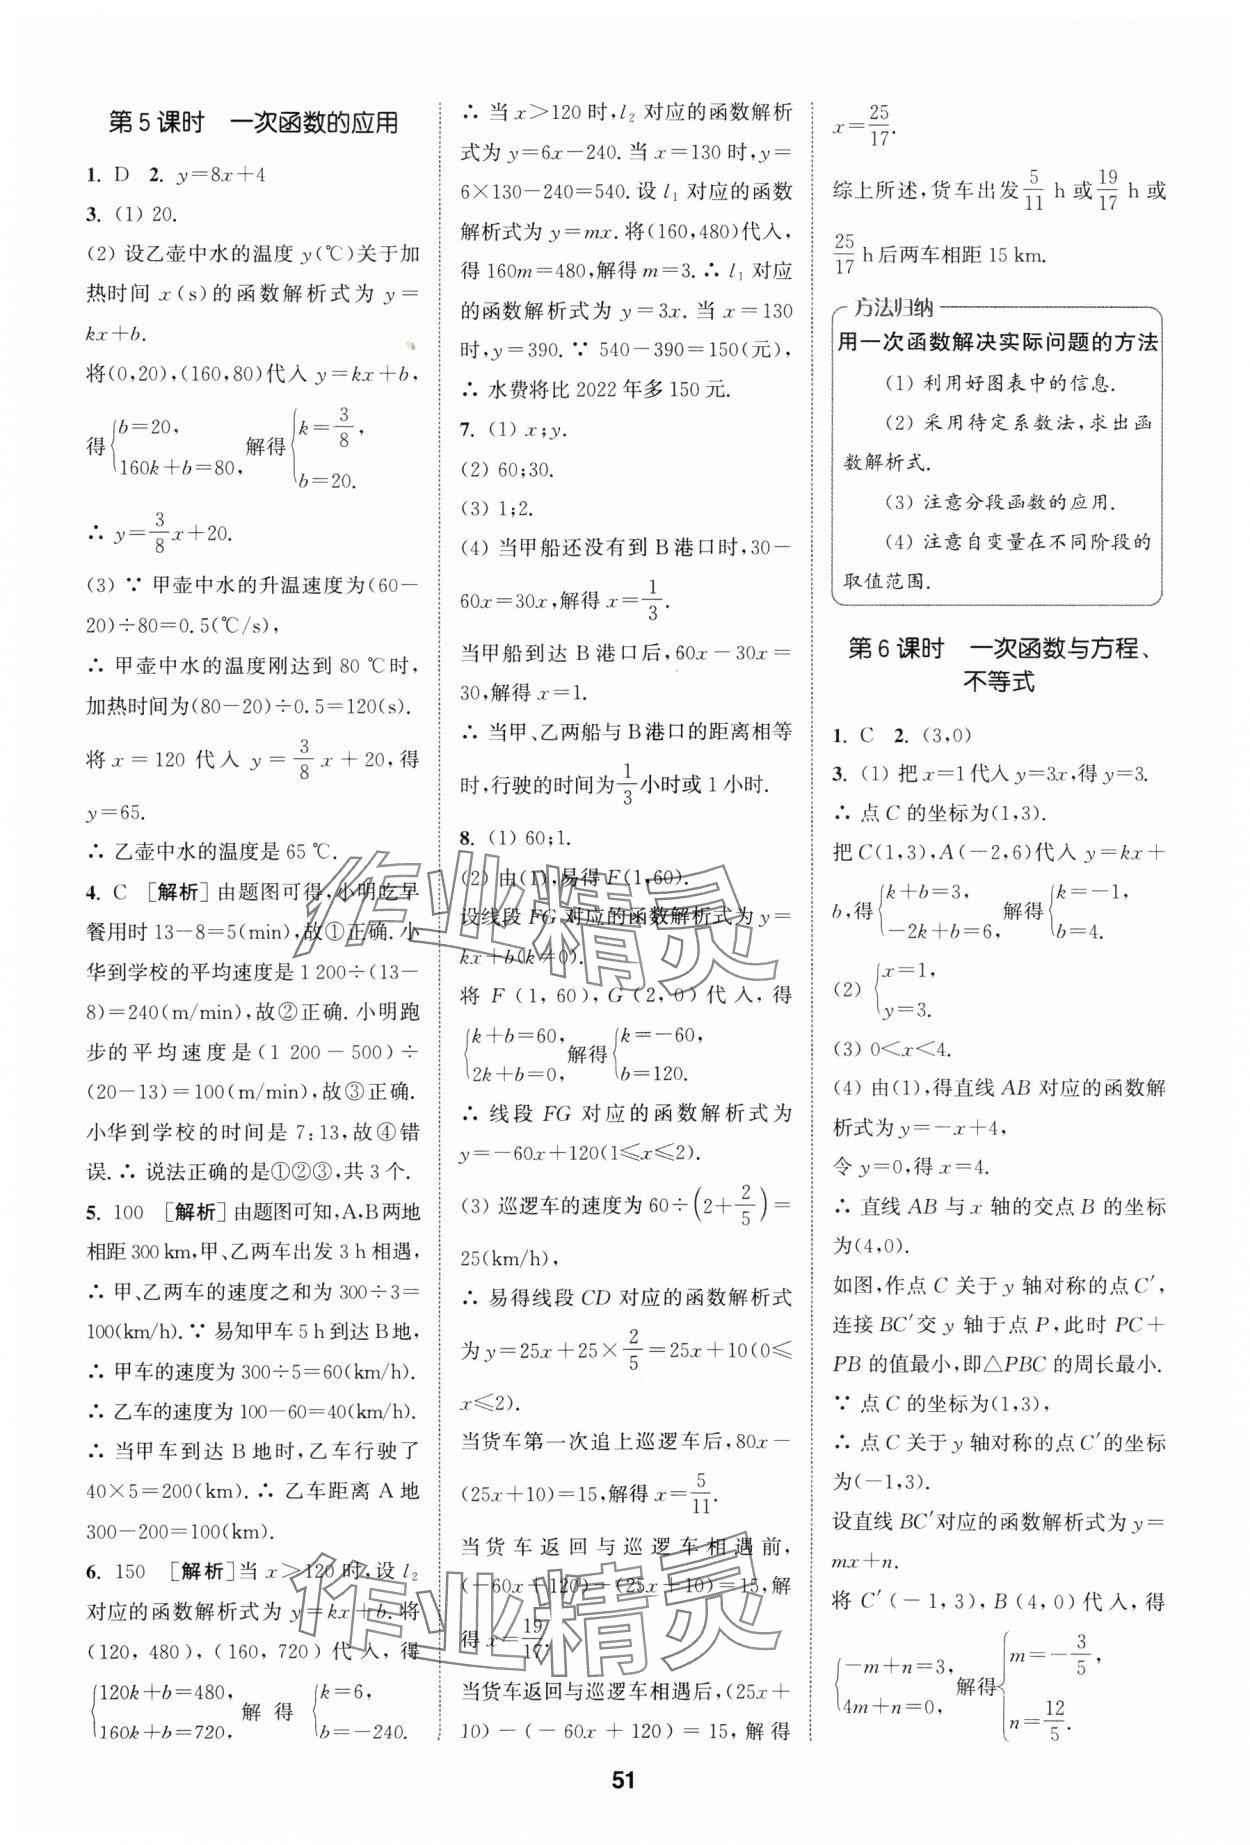 第5课时　一次函数的应用
1. D　2. y=8x+4
3. (1) 20.
(2) 设乙壶中水的温度 y(℃)关于加
热时间 x(s)的函数解析式为 y=
kx+b.
将(0,20),(160,80)代入 y=kx+b,
得{b=20, 160k+b=80, 解得{k=3/8, b=20.
∴ y=3/8x+20.
(3) ∵ 甲壶中水的升温速度为(60-
20)÷80=0.5(℃/s),
∴ 甲壶中水的温度刚达到 80 ℃时,
加热时间为(80-20)÷0.5=120(s).
将 x=120 代入 y=3/8x+20,得
y=65.
∴ 乙壶中水的温度是 65 ℃.
4. C　[解析]由题图可得,小明吃早
餐用时 13-8=5(min),故①正确. 小
华到学校的平均速度是 1 200÷(13-
8)=240(m/min),故②正确. 小明跑
步的平均速度是(1 200-500)÷
(20-13)=100(m/min),故③正确.
小华到学校的时间是 7:13,故④错
误. ∴ 说法正确的是①②③,共 3 个.
5. 100　[解析]由题图可知,A,B两地
相距 300 km,甲、乙两车出发 3 h 相遇,
∴ 甲、乙两车的速度之和为 300÷3=
100(km/h). ∵ 易知甲车 5 h 到达 B 地,
∴ 甲车的速度为 300÷5=60(km/h).
∴ 乙车的速度为 100-60=40(km/h).
∴ 当甲车到达 B 地时,乙车行驶了
40×5=200(km). ∴ 乙车距离 A 地
300-200=100(km).
6. 150　[解析]当 x>120 时,设 l₂
对应的函数解析式为 y=kx+b. 将
(120,480),(160,720)代入,得
{120k+b=480, 160k+b=720, 解得 {k=6, b=-240.
∴ 当 x>120 时,l₂ 对应的函数解析
式为 y=6x-240. 当 x=130 时,y=
6×130-240=540. 设 l₁ 对应的函数
解析式为 y=mx. 将(160,480)代入,
得 160m=480,解得 m=3. ∴ l₁ 对应
的函数解析式为 y=3x. 当 x=130
时,y=390. ∵ 540-390=150(元),
∴ 水费将比 2022 年多 150 元.
7. (1) x;y.
(2) 60;30.
(3) 1;2.
(4) 当甲船还没有到 B 港口时,30-
60x=30x,解得 x=1/3.
当甲船到达 B 港口后,60x-30x=
30,解得 x=1.
∴ 当甲、乙两船与 B 港口的距离相等
时,行驶的时间为1/3小时或 1 小时.
8. (1) 60;1.
(2) 由(1),易得 F(1,60).
设线段 FG 对应的函数解析式为 y=
kx+b(k≠0).
将 F(1,60),G(2,0)代入,得
{k+b=60, 2k+b=0, 解得{k=-60, b=120.
∴ 线段 FG 对应的函数解析式为
y=-60x+120(1≤x≤2).
(3) 巡逻车的速度为 60÷(2+2/5)=
25(km/h),
∴ 易得线段 CD 对应的函数解析式
为 y=25x+25×2/5=25x+10(0≤
x≤2).
当货车第一次追上巡逻车后,80x-
(25x+10)=15,解得 x=5/11.
当货车返回与巡逻车相遇前,
(-60x+120)-(25x+10)=15,解
得 x=19/17;
当货车返回与巡逻车相遇后,(25x+
10)-(-60x+120)=15,解得
x=25/17.
综上所述,货车出发5/11 h 或19/17 h 或
25/17 h后两车相距 15 km.
方法归纳
用一次函数解决实际问题的方法
(1) 利用好图表中的信息.
(2) 采用待定系数法,求出函
数解析式.
(3) 注意分段函数的应用.
(4) 注意自变量在不同阶段的
取值范围.
第6课时　一次函数与方程、
不等式
1. C　2. (3,0)
3. (1) 把 x=1代入 y=3x,得 y=3.
∴ 点 C 的坐标为(1,3).
把 C(1,3),A(-2,6)代入 y=kx+
b,得{k+b=3, -2k+b=6, 解得{k=-1, b=4.
(2) {x=1, y=3.
(3) 0<x<4.
(4) 由(1),得直线 AB 对应的函数解
析式为 y=-x+4,
令 y=0,得 x=4.
∴ 直线 AB 与 x 轴的交点 B 的坐标
为(4,0).
如图,作点 C 关于 y 轴对称的点 C′,
连接 BC′交 y 轴于点 P,此时 PC+
PB 的值最小,即△PBC 的周长最小.
∵ 点 C 的坐标为(1,3),
∴ 点 C 关于 y 轴对称的点 C′的坐标
为(-1,3).
设直线 BC′对应的函数解析式为 y=
mx+n.
将 C′(-1,3),B(4,0)代入,得
{-m+n=3, 4m+n=0, 解得{m=-3/5, n=12/5.
51
作业精灵
作业精灵